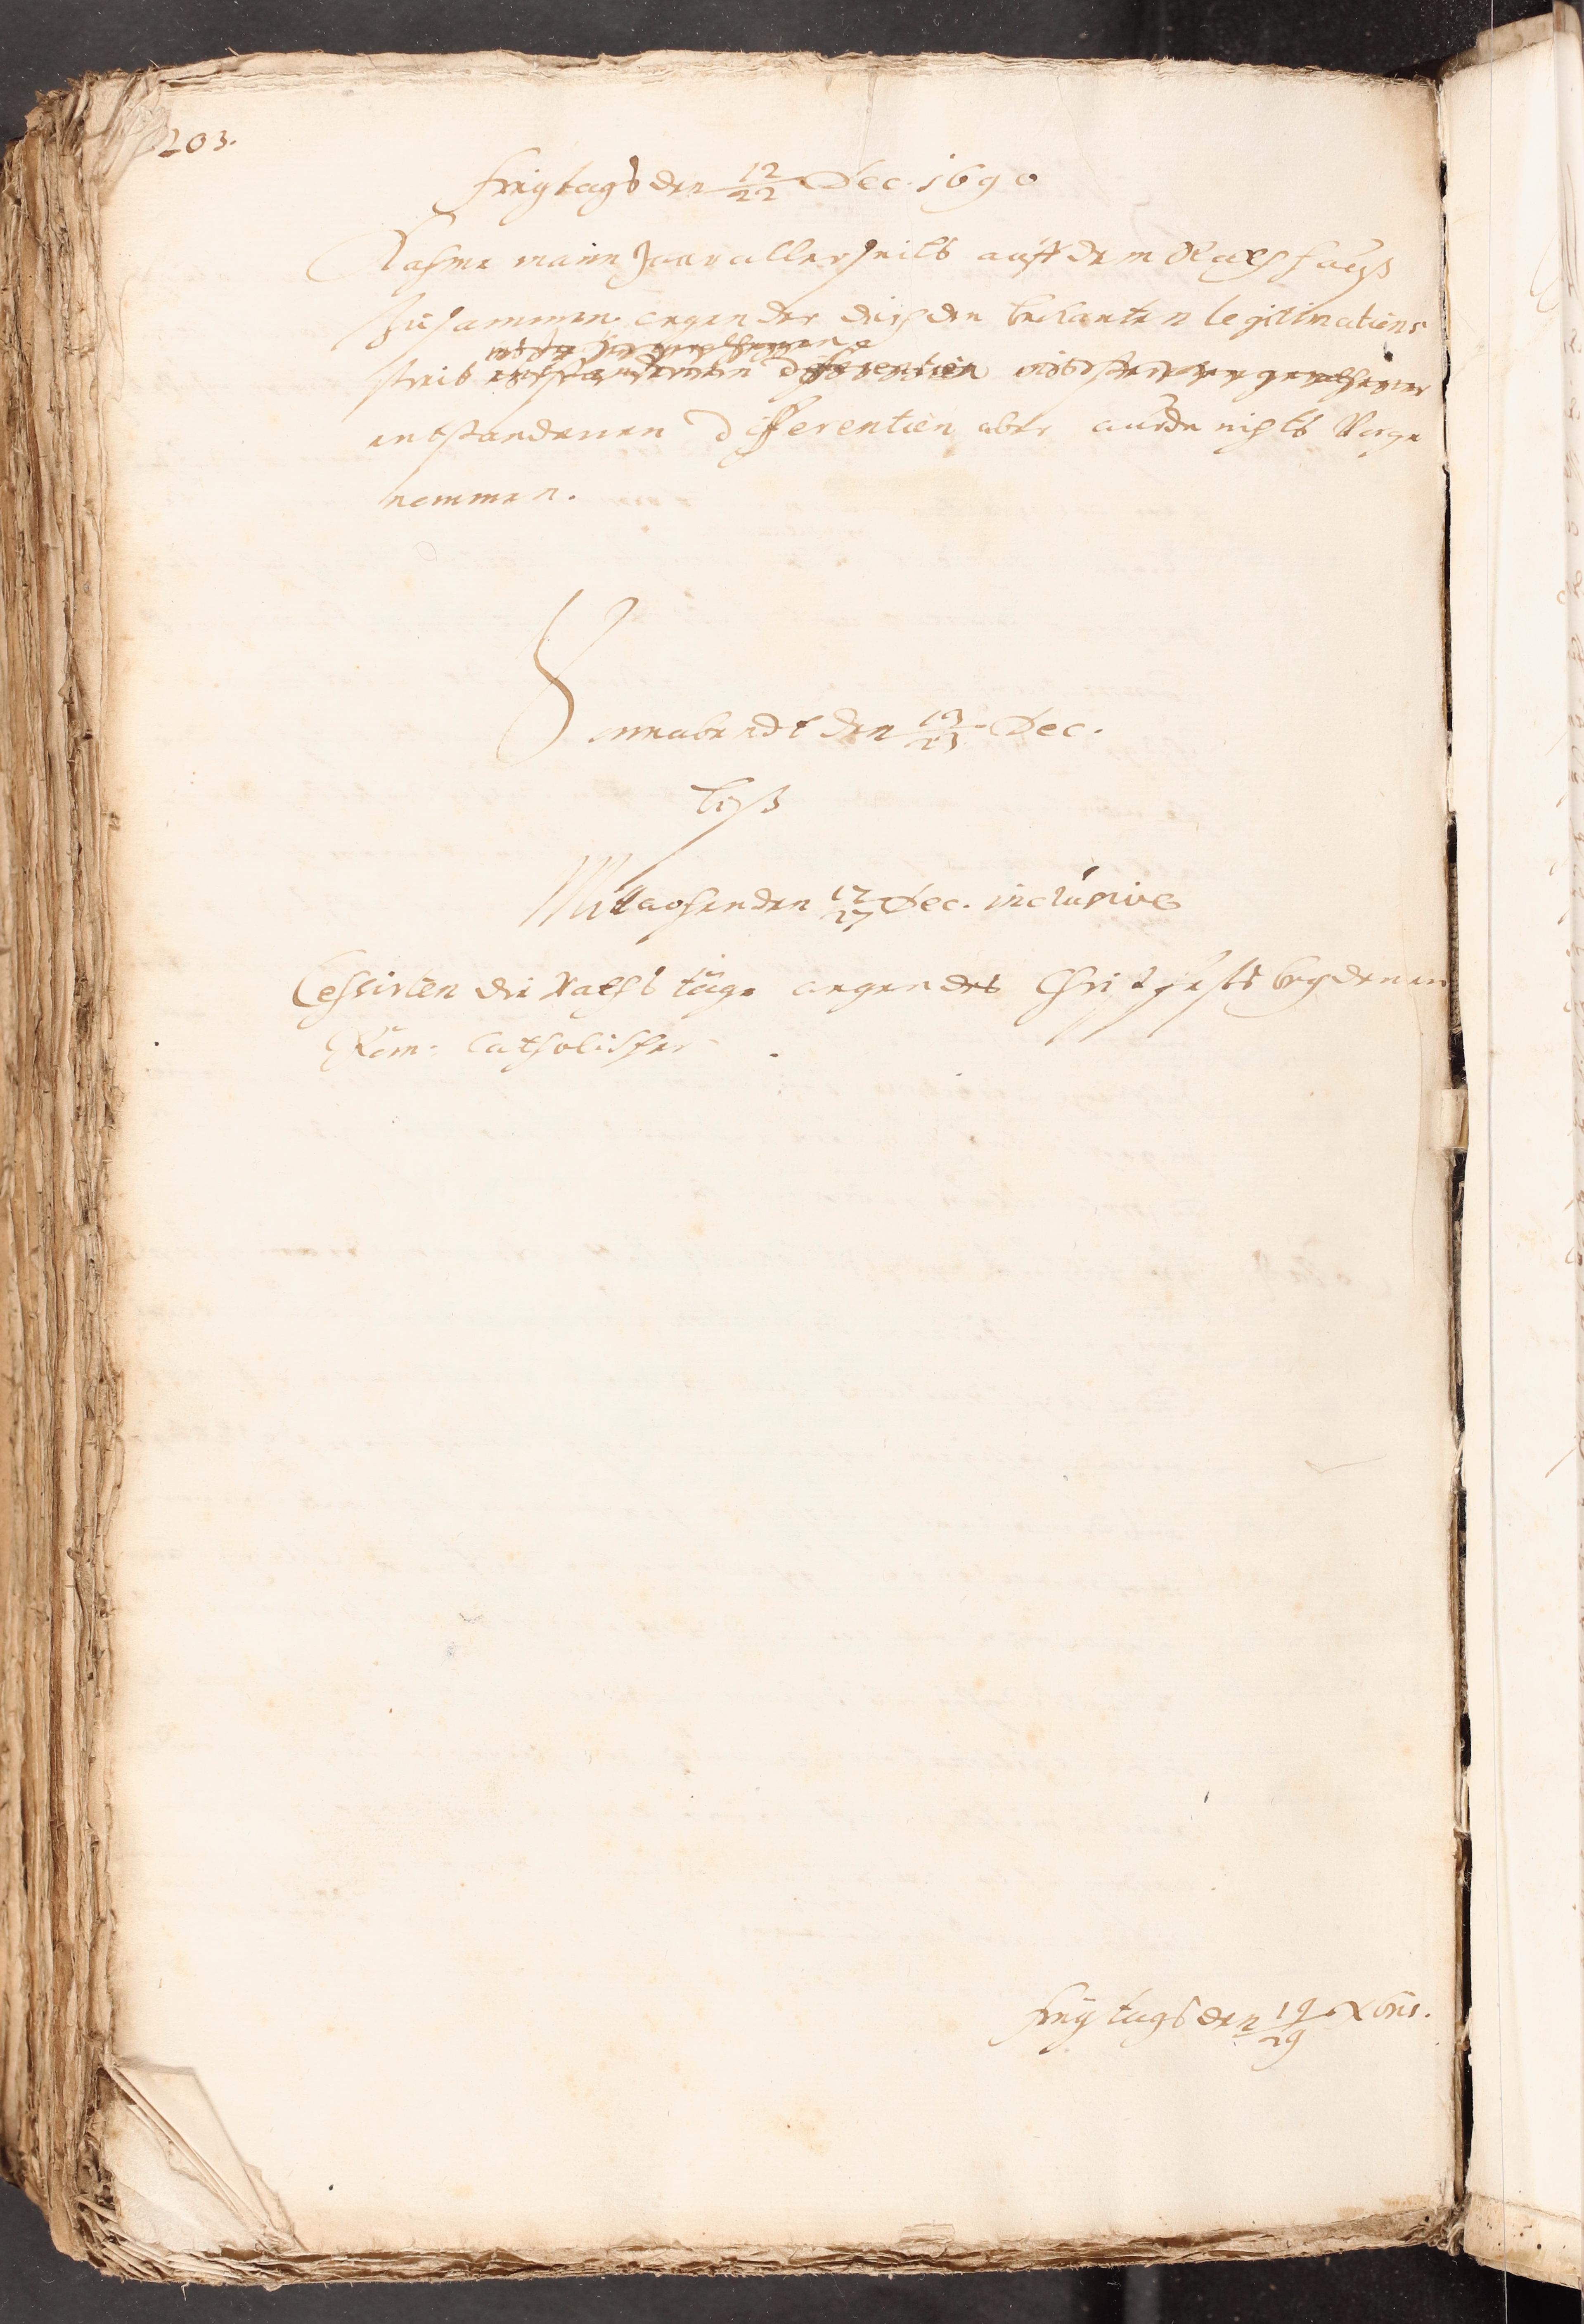 203.
Freytags den 12/22 Dec. 1690
Kahme man zwar allerseits auff dem Rathhauß
zusammen, wegen der durch den bekanten legitimations
streit entstandenen differentien
entstandenen Differentien aber wurde nichts Vorge
nommen.
Sonnabendt den 13/23 Dec.
biß
Mittwochen den 17/27 Dec. inclusive
Cessirten die Raths täge wegen des Christfests bey denen
Röm: Catholischen.
Freytags den 19/29 Xbris.